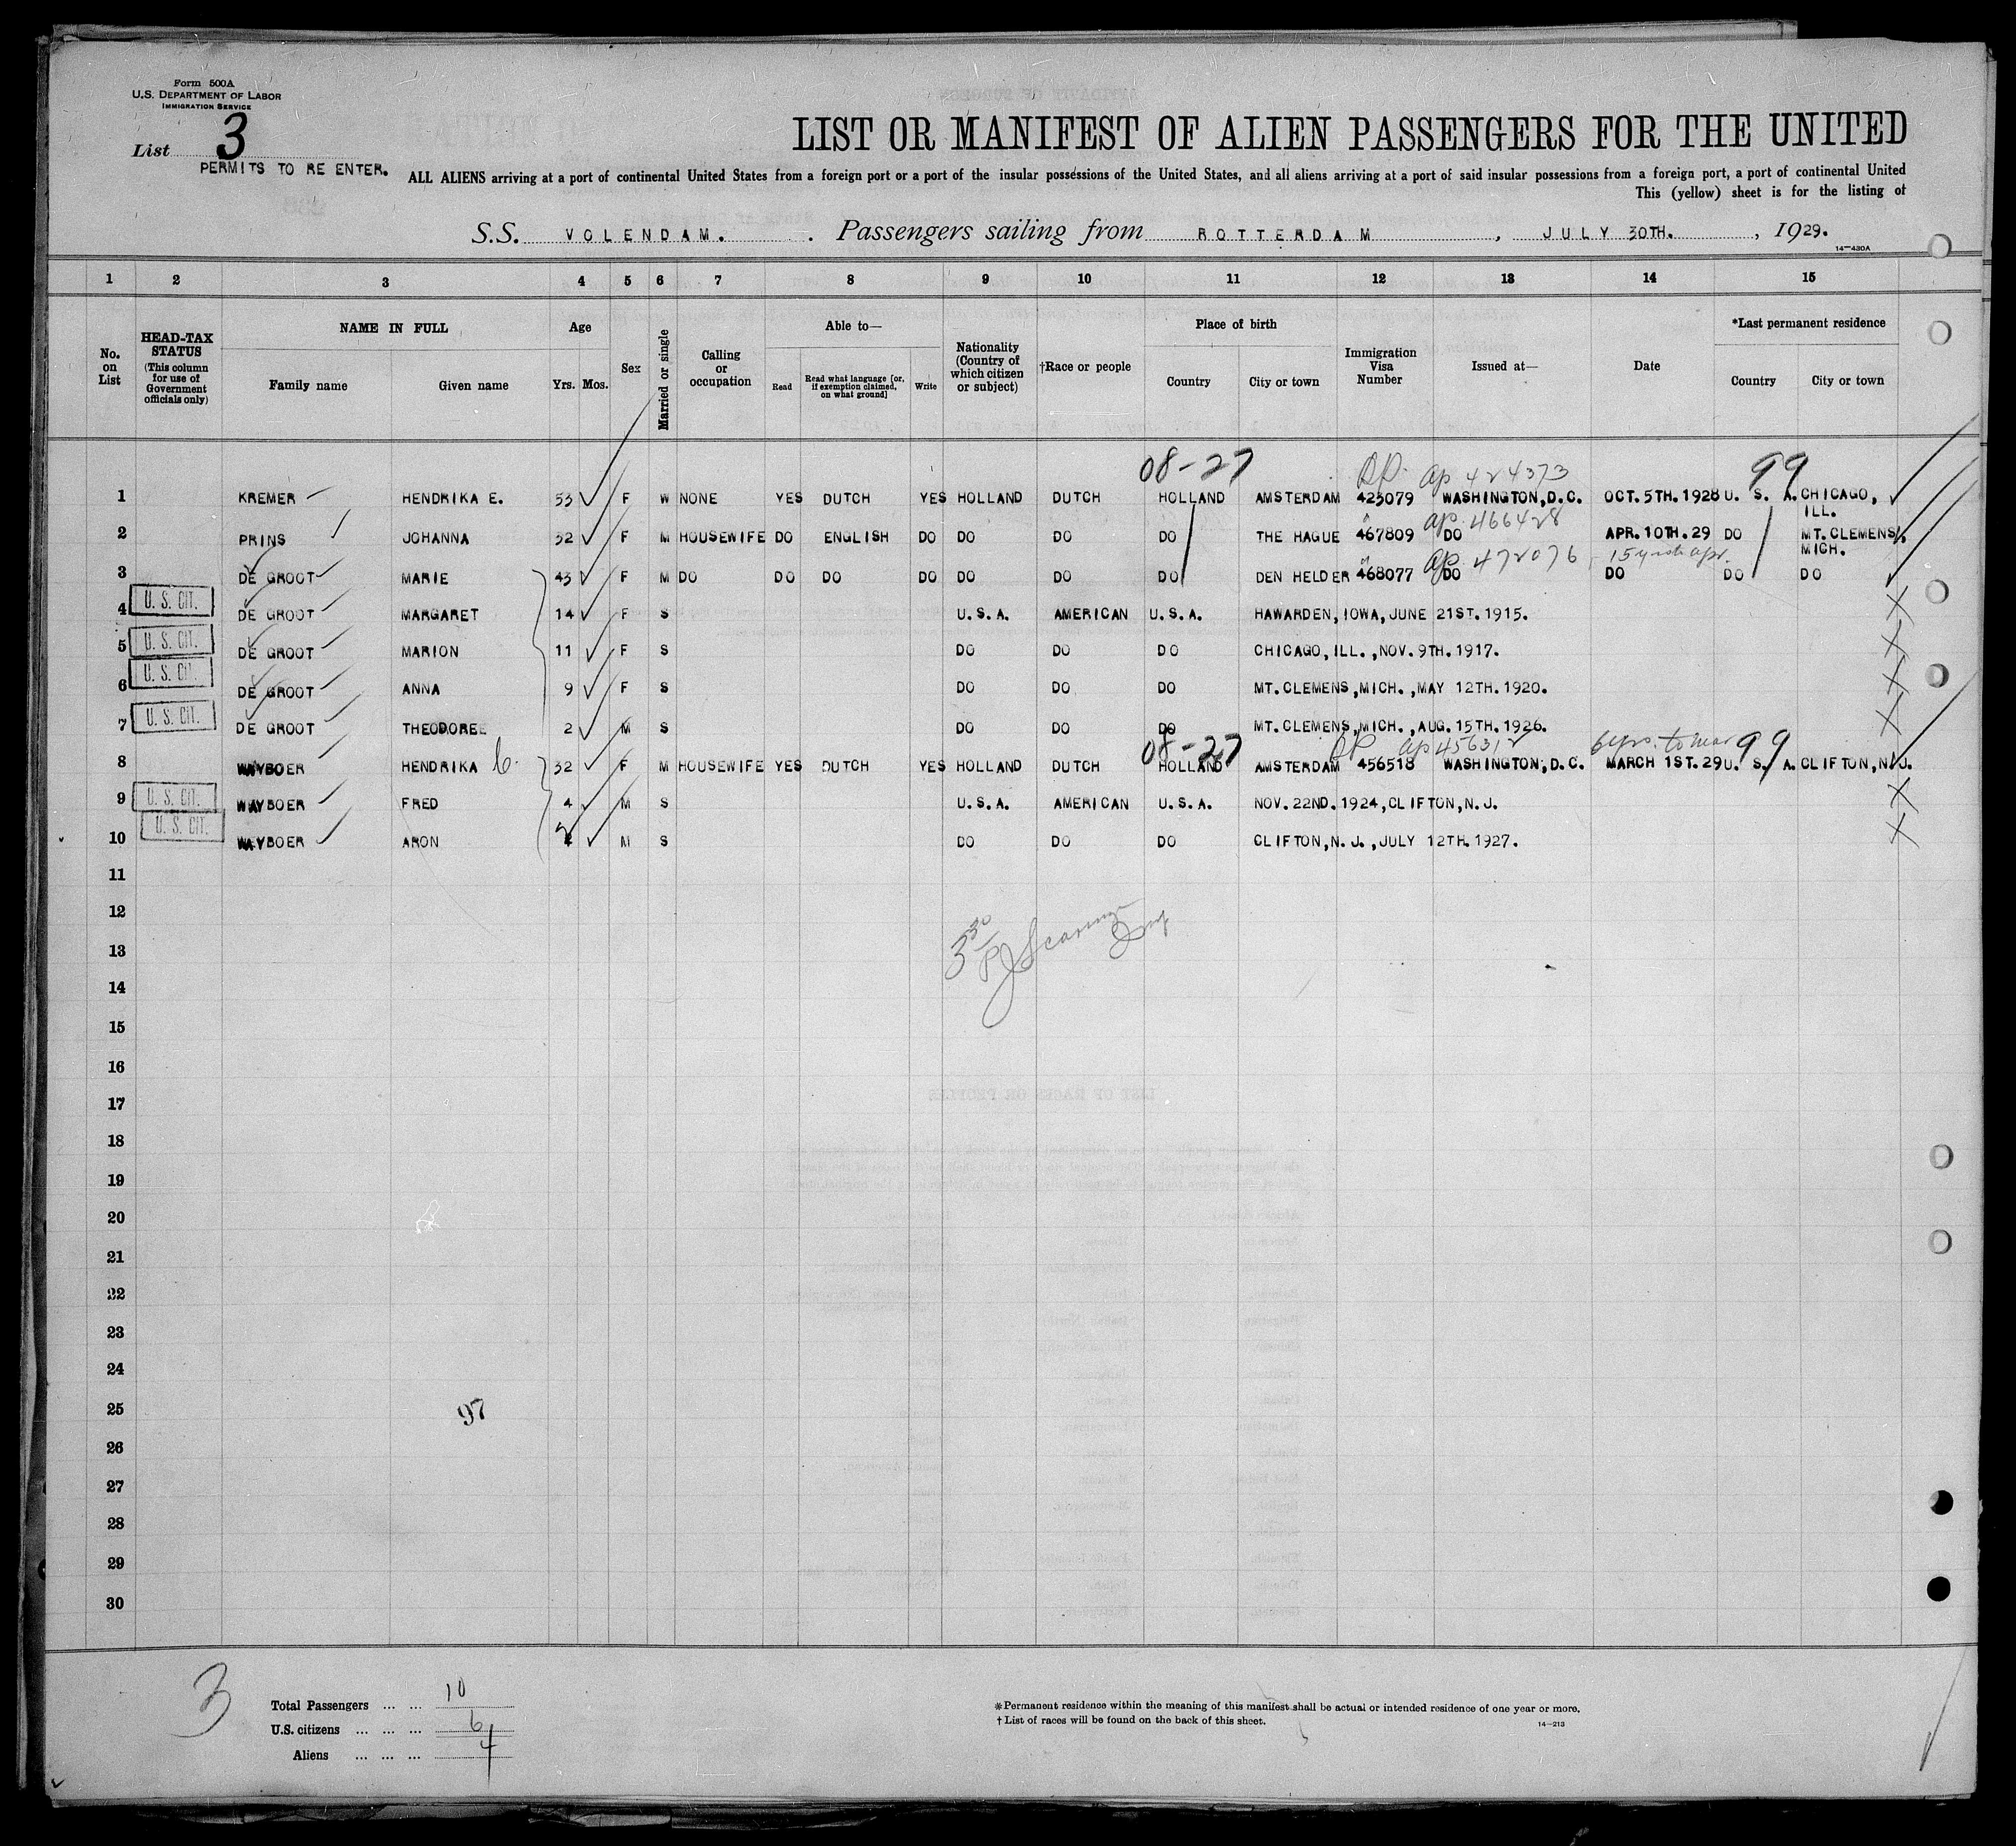 Form 500A
U.S. DEPARTMENT OF LABOR
IMMIGRATION SERVICE
List 3
PERMITS TO RE ENTER.
LIST OR MANIFEST OF ALIEN PASSENGERS FOR THE UNITED
ALL ALIENS arriving at a port of continental United States from a foreign port or a port of the insular possessions of the United States, and all aliens arriving at a port of said insular possessions from a foreign port, a port of continental United
This (yellow) sheet is for the listing of
S.S. VOLENDAM. Passengers sailing from ROTTERDAM, JULY 30TH., 1929.
14-430A
1 2 3 4 5 6 7 8 9 10 11 12 13 14 15
No. on List
HEAD-TAX STATUS (This column for use of Government officials only)
NAME IN FULL
Family name Given name
Age
Yrs. Mos.
Sex
Married or single
Calling or occupation
Able to—
Read
Read what language [or, if exemption claimed, on what ground]
Write
Nationality (Country of which citizen or subject)
†Race or people
Place of birth
Country City or town
Immigration Visa Number
Issued at—
Date
*Last permanent residence
Country City or town
08-27 ap 424373 99
1 KREMER HENDRIKA E. 53 F W NONE YES DUTCH YES HOLLAND DUTCH HOLLAND AMSTERDAM 423079 WASHINGTON, D.C. OCT. 5TH. 1928 U. S. A. CHICAGO, ILL.
ap. 466428
2 PRINS JOHANNA 32 F M HOUSEWIFE DO ENGLISH DO DO DO DO THE HAGUE 467809 DO APR. 10TH. 29 DO MT. CLEMENS, MICH.
ap. 472076
3 DE GROOT MARIE 43 F M DO DO DO DO DO DO DO DEN HELDER 468077 DO DO DO DO
4 U. S. CIT. DE GROOT MARGARET 14 F S U.S.A. AMERICAN U.S.A. HAWARDEN, IOWA, JUNE 21ST. 1915.
5 U. S. CIT. DE GROOT MARION 11 F S DO DO DO CHICAGO, ILL., NOV. 9TH. 1917.
6 U. S. CIT. DE GROOT ANNA 9 F S DO DO DO MT. CLEMENS, MICH., MAY 12TH. 1920.
7 U. S. CIT. DE GROOT THEODORE 2 M S DO DO DO MT. CLEMENS, MICH., AUG. 15TH. 1926.
08-27 99
8 WAYBOER HENDRIKA C. 32 F M HOUSEWIFE YES DUTCH YES HOLLAND DUTCH HOLLAND AMSTERDAM 456518 WASHINGTON, D.C. MARCH 1ST. 29 U. S. A. CLIFTON, N.J.
9 U. S. CIT. WAYBOER FRED 4 M S U.S.A. AMERICAN U.S.A. NOV. 22ND. 1924, CLIFTON, N.J.
10 U. S. CIT. WAYBOER ARON 2 M S DO DO DO CLIFTON, N.J., JULY 12TH. 1927.
11
12
13
14
15
16
17
18
19
20
21
22
23
24
25
97
26
27
28
29
30
3
Total Passengers ... ... 10
U.S. citizens ... ... ... 6
Aliens ... ... ... 4
*Permanent residence within the meaning of this manifest shall be actual or intended residence of one year or more.
† List of races will be found on the back of this sheet.
14-213